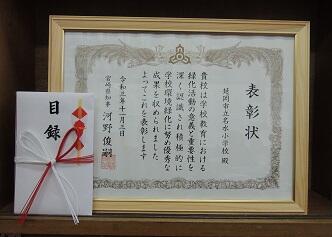 表彰状
延岡市立名水小学校 殿
貴校は学校教育における
緑化活動の意義と重要性を
深く認識され積極的に
学校環境緑化に努め優秀な
成果を収められました
よってこれを表彰します
令和三年十一月三日
宮崎県知事 河野俊嗣
目録